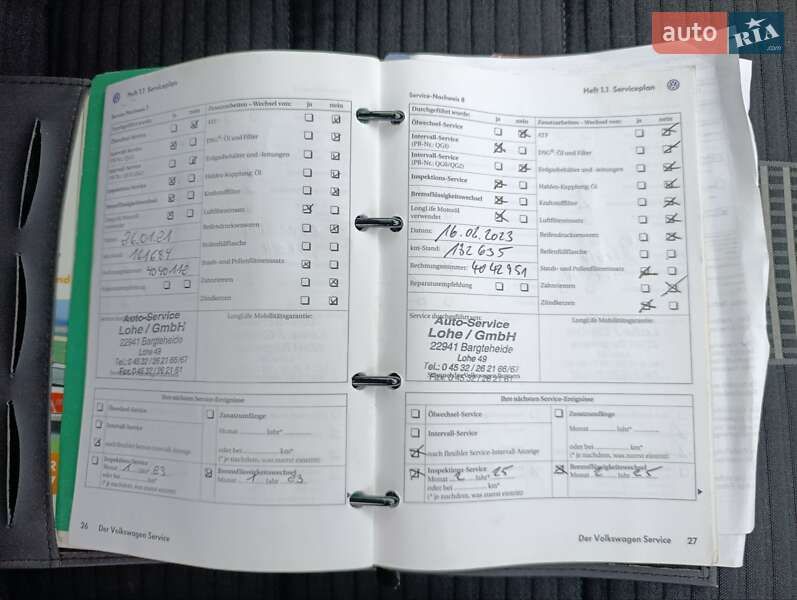 auto RIA .com
Heft 1.1 Serviceplan
Service-Nachweis 7
Durchgeführt wurde: ja nein
Ölwechsel-Service
Intervall-Service
(PR-Nr.: QG1)
Intervall-Service
Inspektions-Service
Bremsflüssigkeitswechsel
LongLife Motoröl
verwendet
26.01.21
Rechnungsnummer: 4040112
Reparaturempfehlung
Zusatzarbeiten - Wechsel von: ja nein
ATF
DSG®-Öl und Filter
Erdgasbehälter und -leitungen
Haldex-Kupplung: Öl
Kraftstofffilter
Luftfiltereinsatz
Reifendruckssensoren
Reifenfüllflasche
Staub- und Pollenfiltereinsatz
Zahnriemen
Zündkerzen
Service durchgeführt am:
LongLife Mobilitätsgarantie:
Auto-Service
Lohe / GmbH
22941 Bargteheide
Lohe 49
Tel.: 0 45 32 / 26 21 66/67
Fax 0 45 32 / 26 21 61
Ihre nächsten Service-Ereignisse
Ölwechsel-Service
Intervall-Service
nach flexibler Service-Intervall-Anzeige
Inspektions-Service
Monat 1 Jahr 23
oder bei km*
(* je nachdem, was zuerst eintritt)
Zusatzumfänge
Monat Jahr*
oder bei km*
(* je nachdem, was zuerst eintritt)
Bremsflüssigkeitswechsel
Monat 1 Jahr 23
26 Der Volkswagen Service
Heft 1.1 Serviceplan
Service-Nachweis 8
Durchgeführt wurde: ja nein
Ölwechsel-Service
Intervall-Service
(PR-Nr.: QG1)
Intervall-Service
(PR-Nr.: QG0/QG2)
Inspektions-Service
Bremsflüssigkeitswechsel
LongLife Motoröl
verwendet
Datum: 16.02.2023
km-Stand: 132635
Rechnungsnummer: 4042951
Reparaturempfehlung
Zusatzarbeiten - Wechsel von: ja nein
ATF
DSG®-Öl und Filter
Erdgasbehälter und -leitungen
Haldex-Kupplung: Öl
Kraftstofffilter
Luftfiltereinsatz
Reifendruckssensoren
Reifenfüllflasche
Staub- und Pollenfiltereinsatz
Zahnriemen
Zündkerzen
Service durchgeführt am:
LongLife Mobilitätsgarantie:
Auto-Service
Lohe / GmbH
22941 Bargteheide
Lohe 49
Tel.: 0 45 32 / 26 21 66/67
Fax 0 45 32 / 26 21 61
Ihre nächsten Service-Ereignisse
Ölwechsel-Service
Intervall-Service
nach flexibler Service-Intervall-Anzeige
Inspektions-Service
Monat 2 Jahr* 25
oder bei km*
(* je nachdem, was zuerst eintritt)
Zusatzumfänge
Monat Jahr*
oder bei km*
(* je nachdem, was zuerst eintritt)
Bremsflüssigkeitswechsel
Monat 2 Jahr 25
Der Volkswagen Service 27